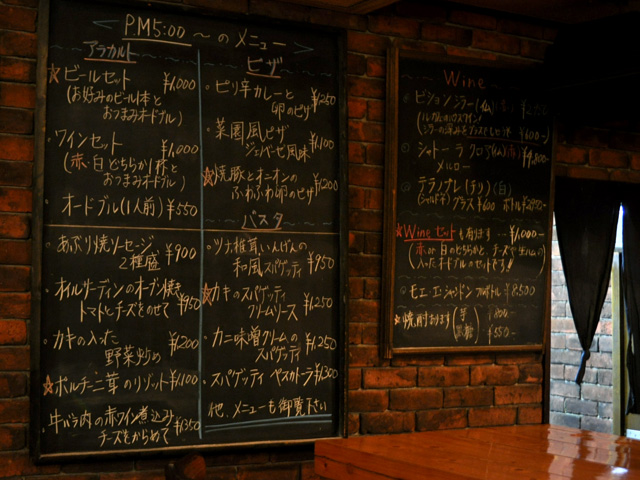 PM5:00～のメニュー
アラカルト
★ビールセット ¥1,000
(お好みのビール1本と
おつまみオードブル)
・ワインセット ¥1,000
(赤・白どちらか1杯と
おつまみオードブル)
・オードブル(1人前) ¥550
・あぶり焼ソーセージ ¥900
2種盛
・オイルサーディンのオーブン焼き
トマトとチーズをのせて ¥950
・カキの入った ¥1,200
野菜炒め
★ポルチーニ茸のリゾット ¥1,100
・牛バラ肉の赤ワイン煮込み ¥1,350
チーズをからめて
ピザ
・ピリ辛カレーと
卵のピザ ¥1,250
・菜園風ピザ ¥1,100
ジェノベーゼ風味
★焼豚とオニオンの
ふわふわ卵のピザ ¥1,200
パスタ
・ツナ椎茸いんげんの
和風スパゲッティ ¥950
★カキのスパゲッティ
クリームソース ¥1,250
・カニ味噌クリームの
スパゲッティ ¥1,250
・スパゲッティ ペスカトーラ ¥1,300
他、メニューも御覧下さい
Wine
シャトー・ラ クロ
メルロー
テラノブレ(チリ)(白)
グラス ¥600 ボトル
★Wineセットも有ります ¥1,000-
(赤or白のどちらかと、チーズや生ハムの
入ったオードブルのセットです!!
モエ・エ・シャンドン フルボトル ¥8,500
★焼酎あります(芋 800-
¥550-